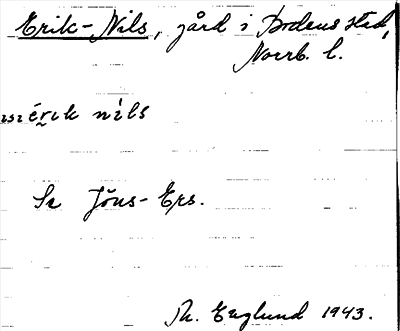 Erik-Nils, gård i Bodens stad,
Norrb. l.
érik nìls
Se Jöns-Ers.
Th. Englund 1943.